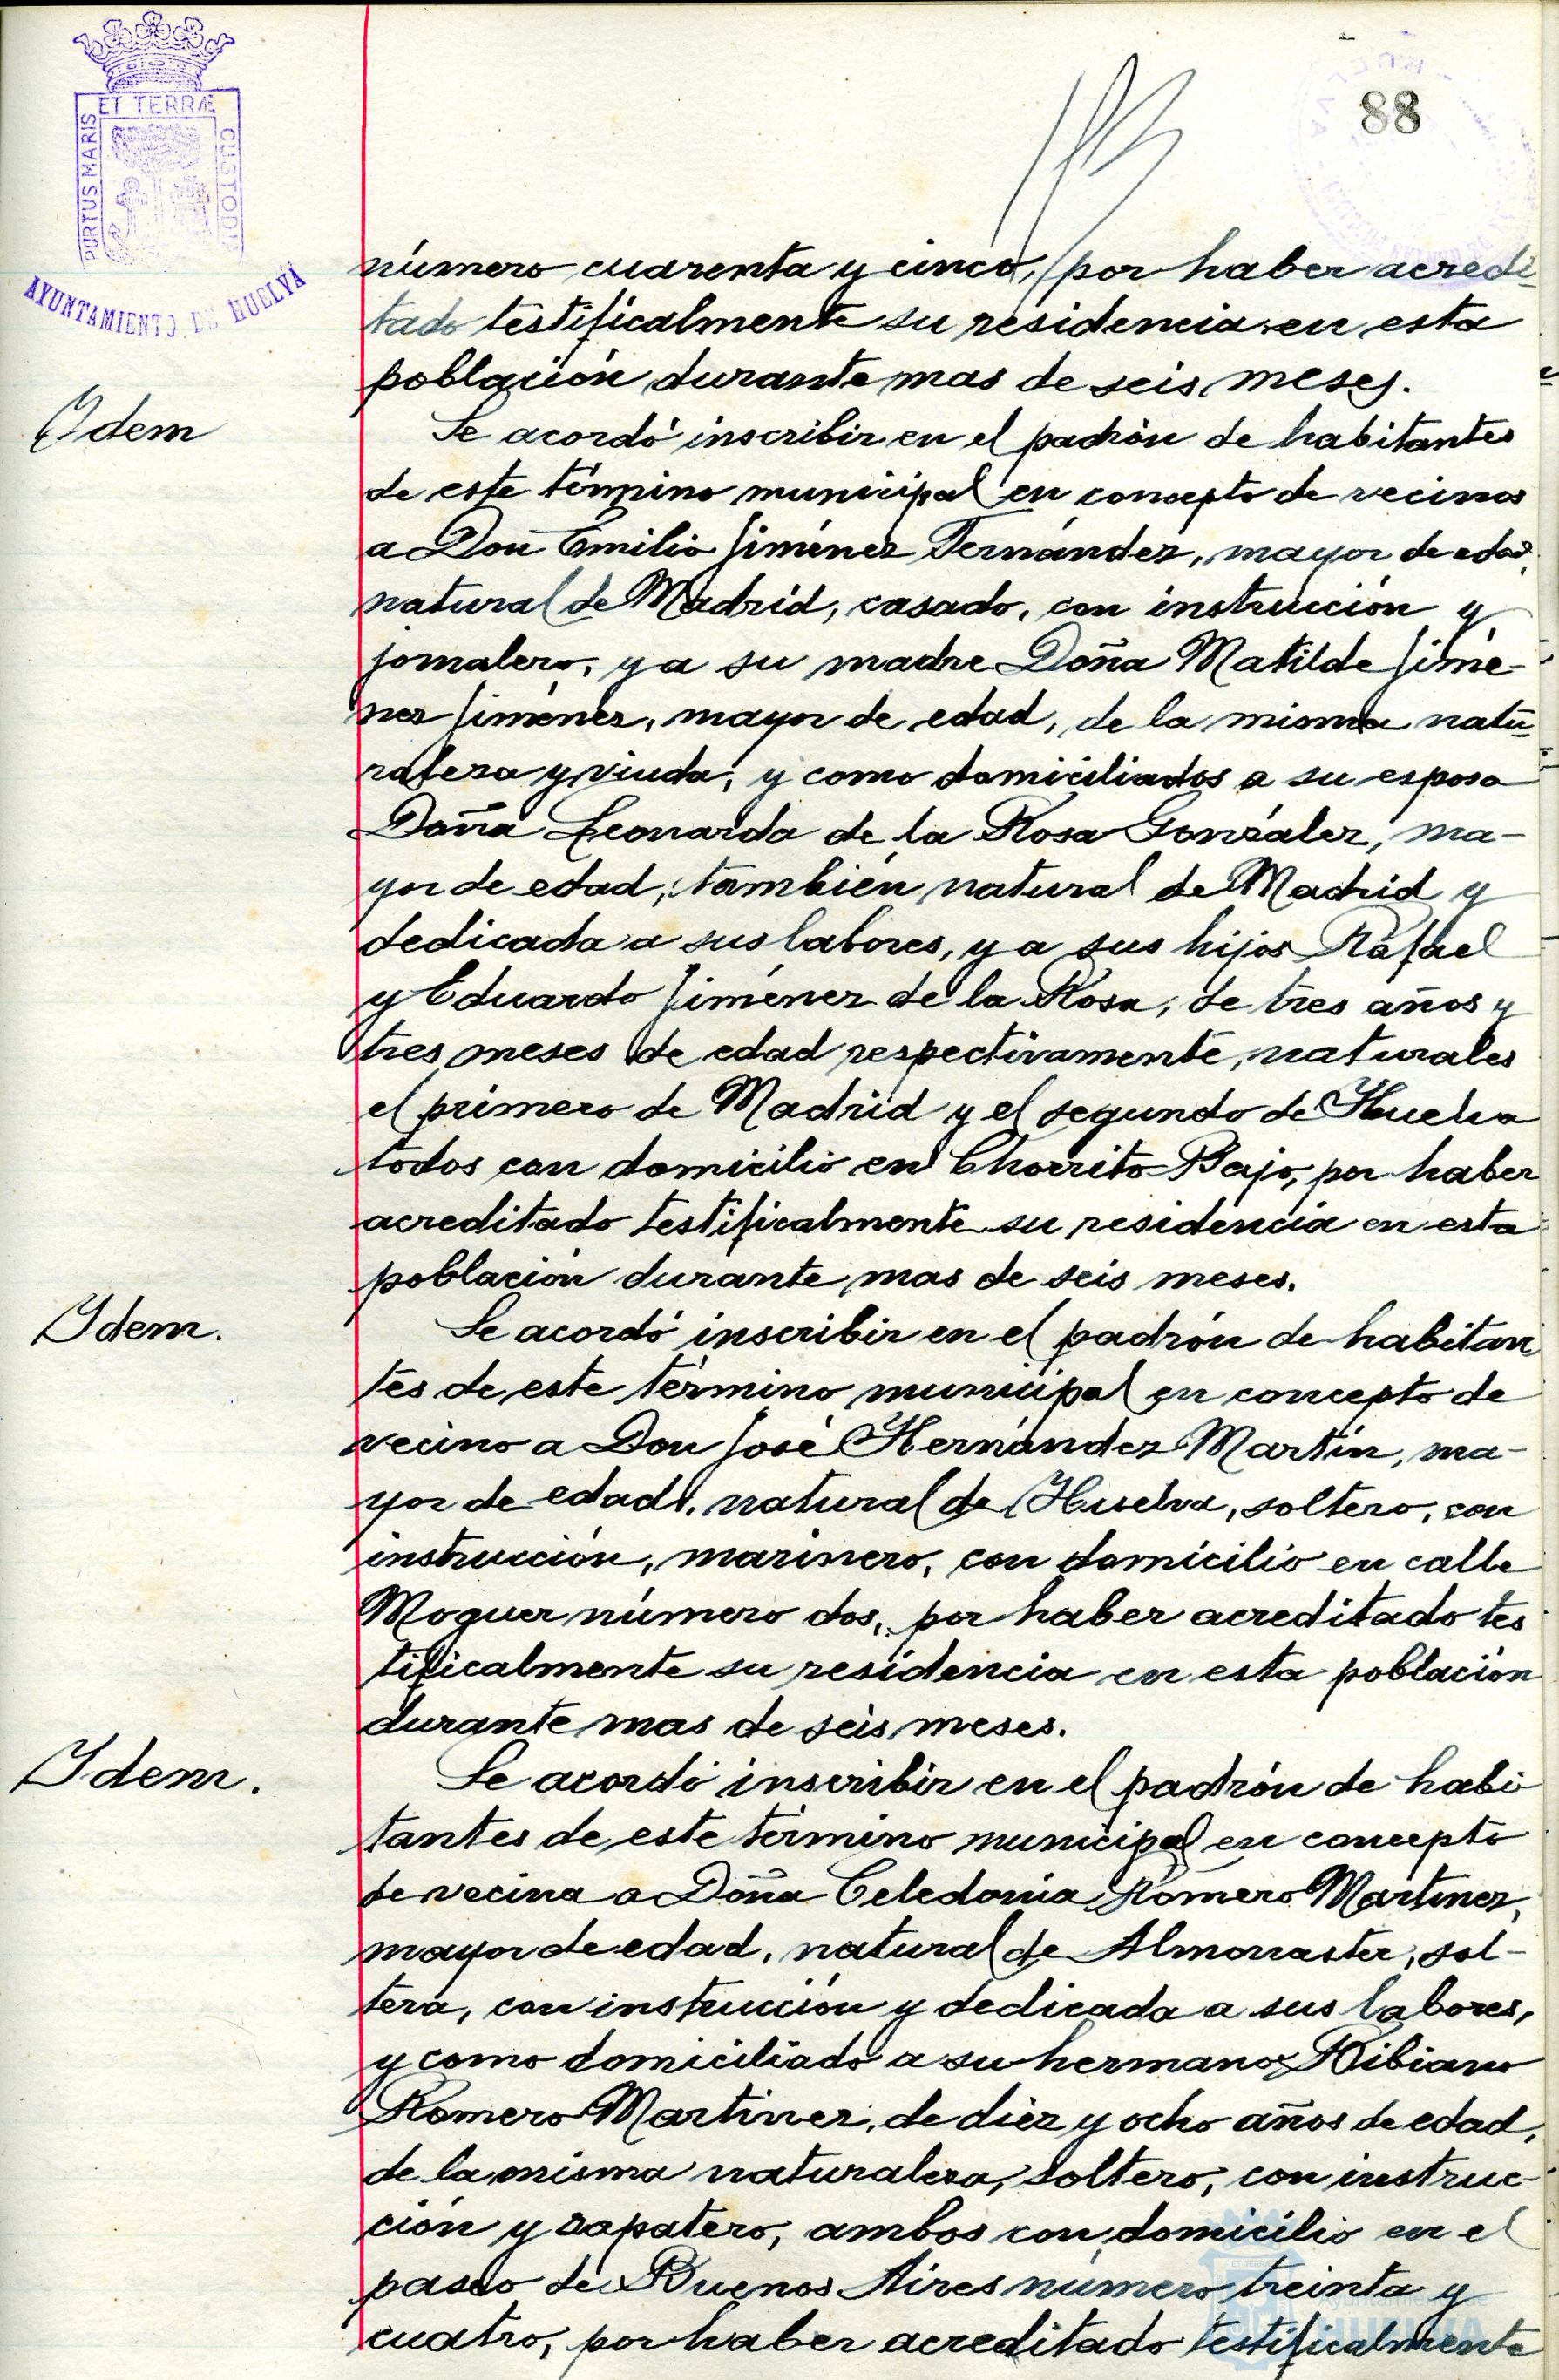 88
ET TERRÆ
PORTUS MARIS
CUSTODIA
AYUNTAMIENTO DE HUELVA
número cuarenta y cinco, por haber acredi-
tado testificalmente su residencia en esta
población durante mas de seis meses.
Idem
Se acordó inscribir en el padrón de habitantes
de este término municipal en concepto de vecinos
a Don Emilio Jiménez Fernández, mayor de edad,
natural de Madrid, casado, con instrucción y
jornalero, y a su madre Doña Matilde Jimé-
nez Jiménez, mayor de edad, de la misma natu-
raleza y viuda, y como domiciliados a su esposa
Doña Leonarda de la Rosa González, ma-
yor de edad, también natural de Madrid y
dedicada a sus labores, y a sus hijos Rafael
y Eduardo Jiménez de la Rosa, de tres años y
tres meses de edad respectivamente, naturales
el primero de Madrid y el segundo de Huelva
todos con domicilio en Chorrito Bajo, por haber
acreditado testificalmente su residencia en esta
población durante mas de seis meses.
Idem.
Se acordó inscribir en el padrón de habitan
tes de este término municipal en concepto de
vecino a Don José Hernández Martín, ma-
yor de edad, natural de Huelva, soltero, con
instrucción, marinero, con domicilio en calle
Moguer número dos, por haber acreditado tes
tificalmente su residencia en esta población
durante mas de seis meses.
Idem.
Se acordó inscribir en el padrón de habi
tantes de este término municipal en concepto
de vecina a Doña Celedonia Romero Martinez,
mayor de edad, natural de Almonaster, sol-
tera, con instrucción y dedicada a sus labores,
y como domiciliado a su hermano Bibiano
Romero Martinez, de diez y ocho años de edad,
de la misma naturaleza, soltero, con instruc-
ción y zapatero, ambos con domicilio en el
paseo de Buenos Aires número treinta y
cuatro, por haber acreditado testificalmente
Ayuntamiento de
HUELVA